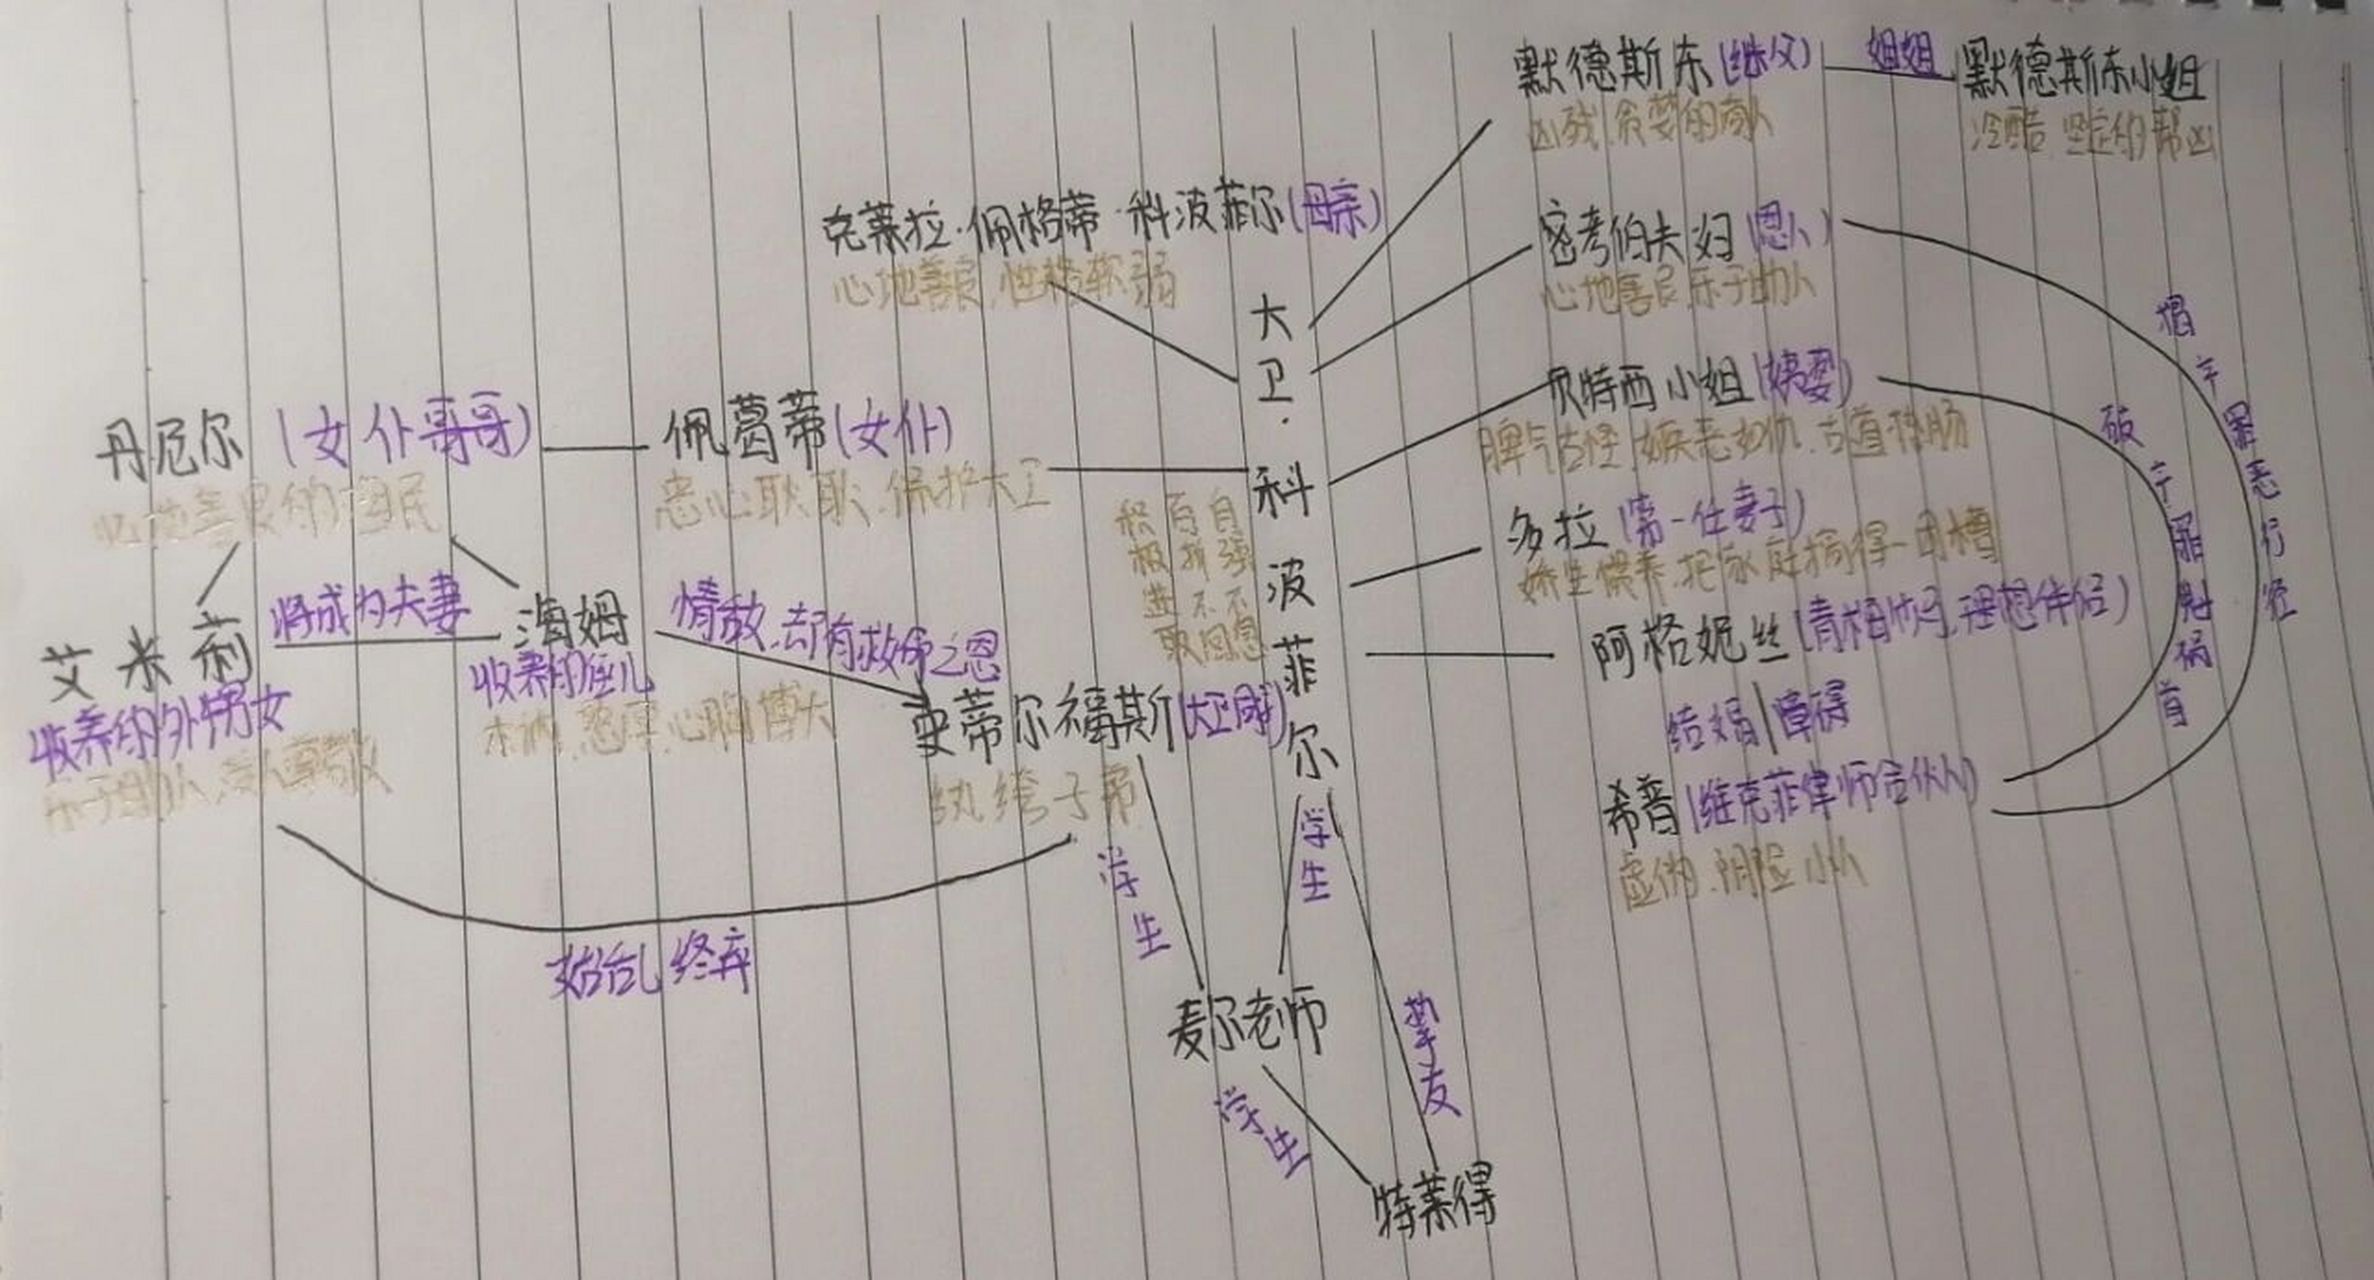 默德斯东(继父)
姐姐
默德斯东小姐
凶残.贪婪的商人
冷酷.坚定的帮凶
克莱拉·佩格蒂·科波菲尔(母亲)
心地善良.性格软弱
密考伯夫妇(恩人)
心地善良.乐于助人
大卫·科波菲尔
积极进取
百折不回
自强不息
贝特西小姐(姨婆)
脾气古怪.嫉恶如仇.古道热肠
丹尼尔(女仆哥哥)
心地善良的渔民
佩葛蒂(女仆)
忠心耿耿.保护大卫
多拉(第一任妻子)
娇生惯养.把家庭搞得一团糟
艾米莉
收养的外甥女
乐于助人.受人尊敬
将成为夫妻
海姆
收养的侄儿
木讷.憨厚.心胸博大
情敌.却有救命之恩
史蒂尔福斯(大卫同学)
纨绔子弟
阿格妮丝(青梅竹马.理想伴侣)
结婚障碍
希普(维克菲律师合伙人)
虚伪.阴险小人
罪恶行径
罪魁祸首
始乱终弃
学生
学生
麦尔老师
学生
挚友
特莱得